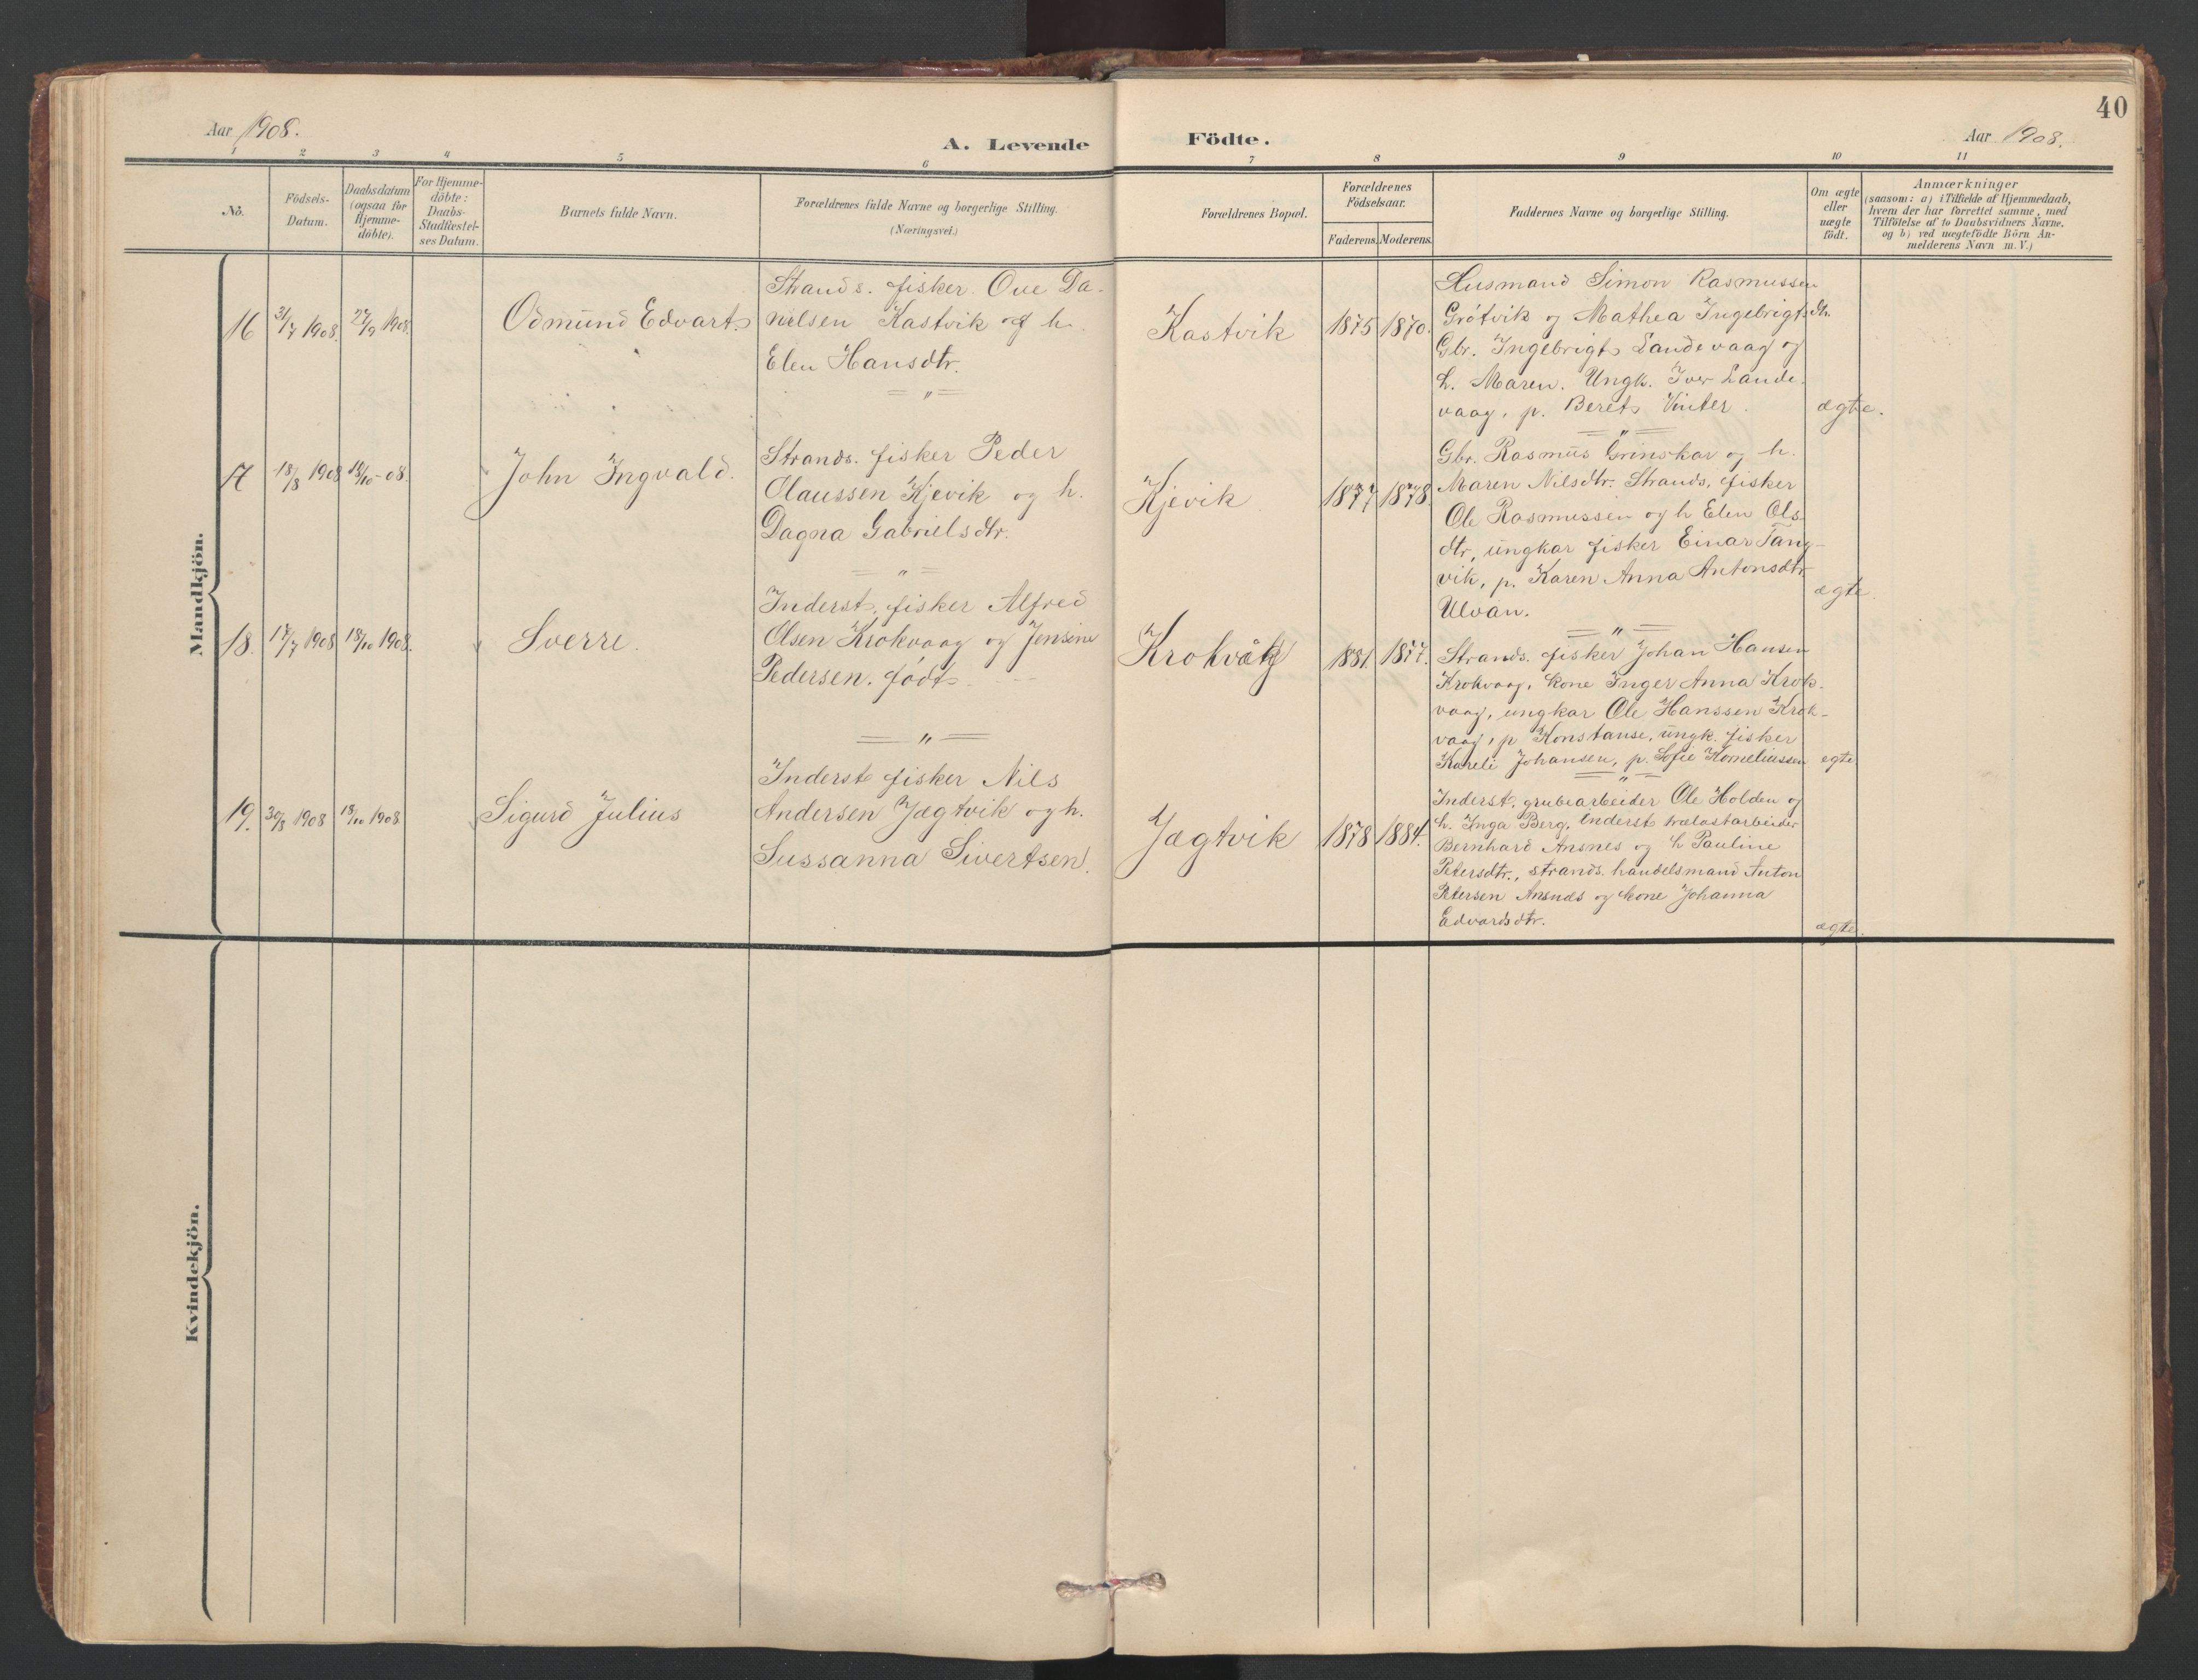 40
Aar 1908.
A. Levende Födte.
Aar 1908.
1 2 3 4 5 6 7 8 9 10 11
No.
Födsels-
Datum.
Daabsdatum
(ogsaa for
Hjemme-
döbte).
For Hjemme-
döbte:
Daabs-
Stadfæstel-
ses Datum.
Barnets fulde Navn.
Forældrenes fulde Navne og borgerlige Stilling.
(Næringsvei.)
Forældrenes Bopæl.
Forældrenes
Födselsaar.
Faderens. Moderens.
Faddernes Navne og borgerlige Stilling.
Om ægte
eller
uægte
födt.
Anmærkninger
(saasom: a) i Tilfælde af Hjemmedaab,
hvem der har forrettet samme, med
Tilföielse af to Daabsvidners Navne.
og b) ved uægtefödte Börn An-
melderens Navn m. V.)
Mandkjön.
16 31/7 1908. 27/9 1908.
Odmund Edvart
Strands. fisker Ove Da-
nielsen Kastvik og h.
Elen Hansdtr.
Kastvik
1875 1870.
Husmand Simon Rasmussen
Grötvik og Mathea Ingebrigtsdtr.
Gbr. Ingebrigt Landevaag og
h. Maren. Ungk. Iver Lande-
vaag, p. Beret Vinter.
ægte.
17 18/8 1908 18/10-08.
John Ingvald.
Strands. fisker Peder
Olaussen Kjevik og h.
Dagna Gabrielsdtr.
Kjevik
1877 1878.
Gbr. Rasmus Grinskar og h.
Maren Nilsdtr. Strands. fisker
Ole Rasmussen og h Elen Ols
dtr, ungkar fisker Einar Tang-
vik, p. Karen Anna Antonsdtr
Ulvan.
ægte.
18. 17/7 1908 18/10 1908.
Sverre.
Inderst, fisker Alfred
Olsen Krokvaag og Jensine
Pedersen. födt
Krokvåg
1881. 1877.
Strands. fisker Johan Hansen
Krokvaag, kone Inger Anna Krok-
vaag, ungkar Ole Hanssen Krok-
vaag, p Konstanse, ungk. fisker
Kareli Johansen, p. Sofie Korneliussen
egte
19. 30/8 1908 18/10 1908.
Sigurd Julius
Inderst fisker Nils
Andersen Jægtvik og h.
Sussanna Sivertsen.
Jægtvik
1878 1884.
Inderst, grubearbeider Ole Holden og
h. Inga Berg. Inderst trælastarbeider
Bernhard Ansnes og h Pauline
Petersdtr., strands. handelsmand Anton
Petersen Ansnes og kone Johanna
Edvardsdtr.
ægte.
Kvindekjön.